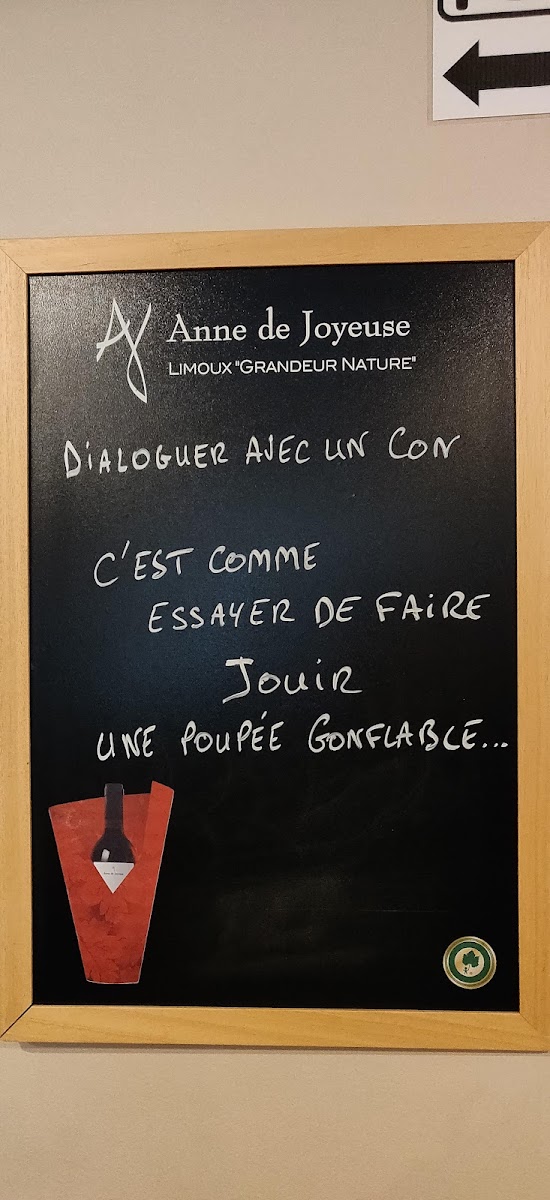 Anne de Joyeuse
LIMOUX "GRANDEUR NATURE"
DIALOGUER AVEC UN CON
C'EST COMME
ESSAYER DE FAIRE
JOUIR
UNE POUPÉE GONFLABLE...